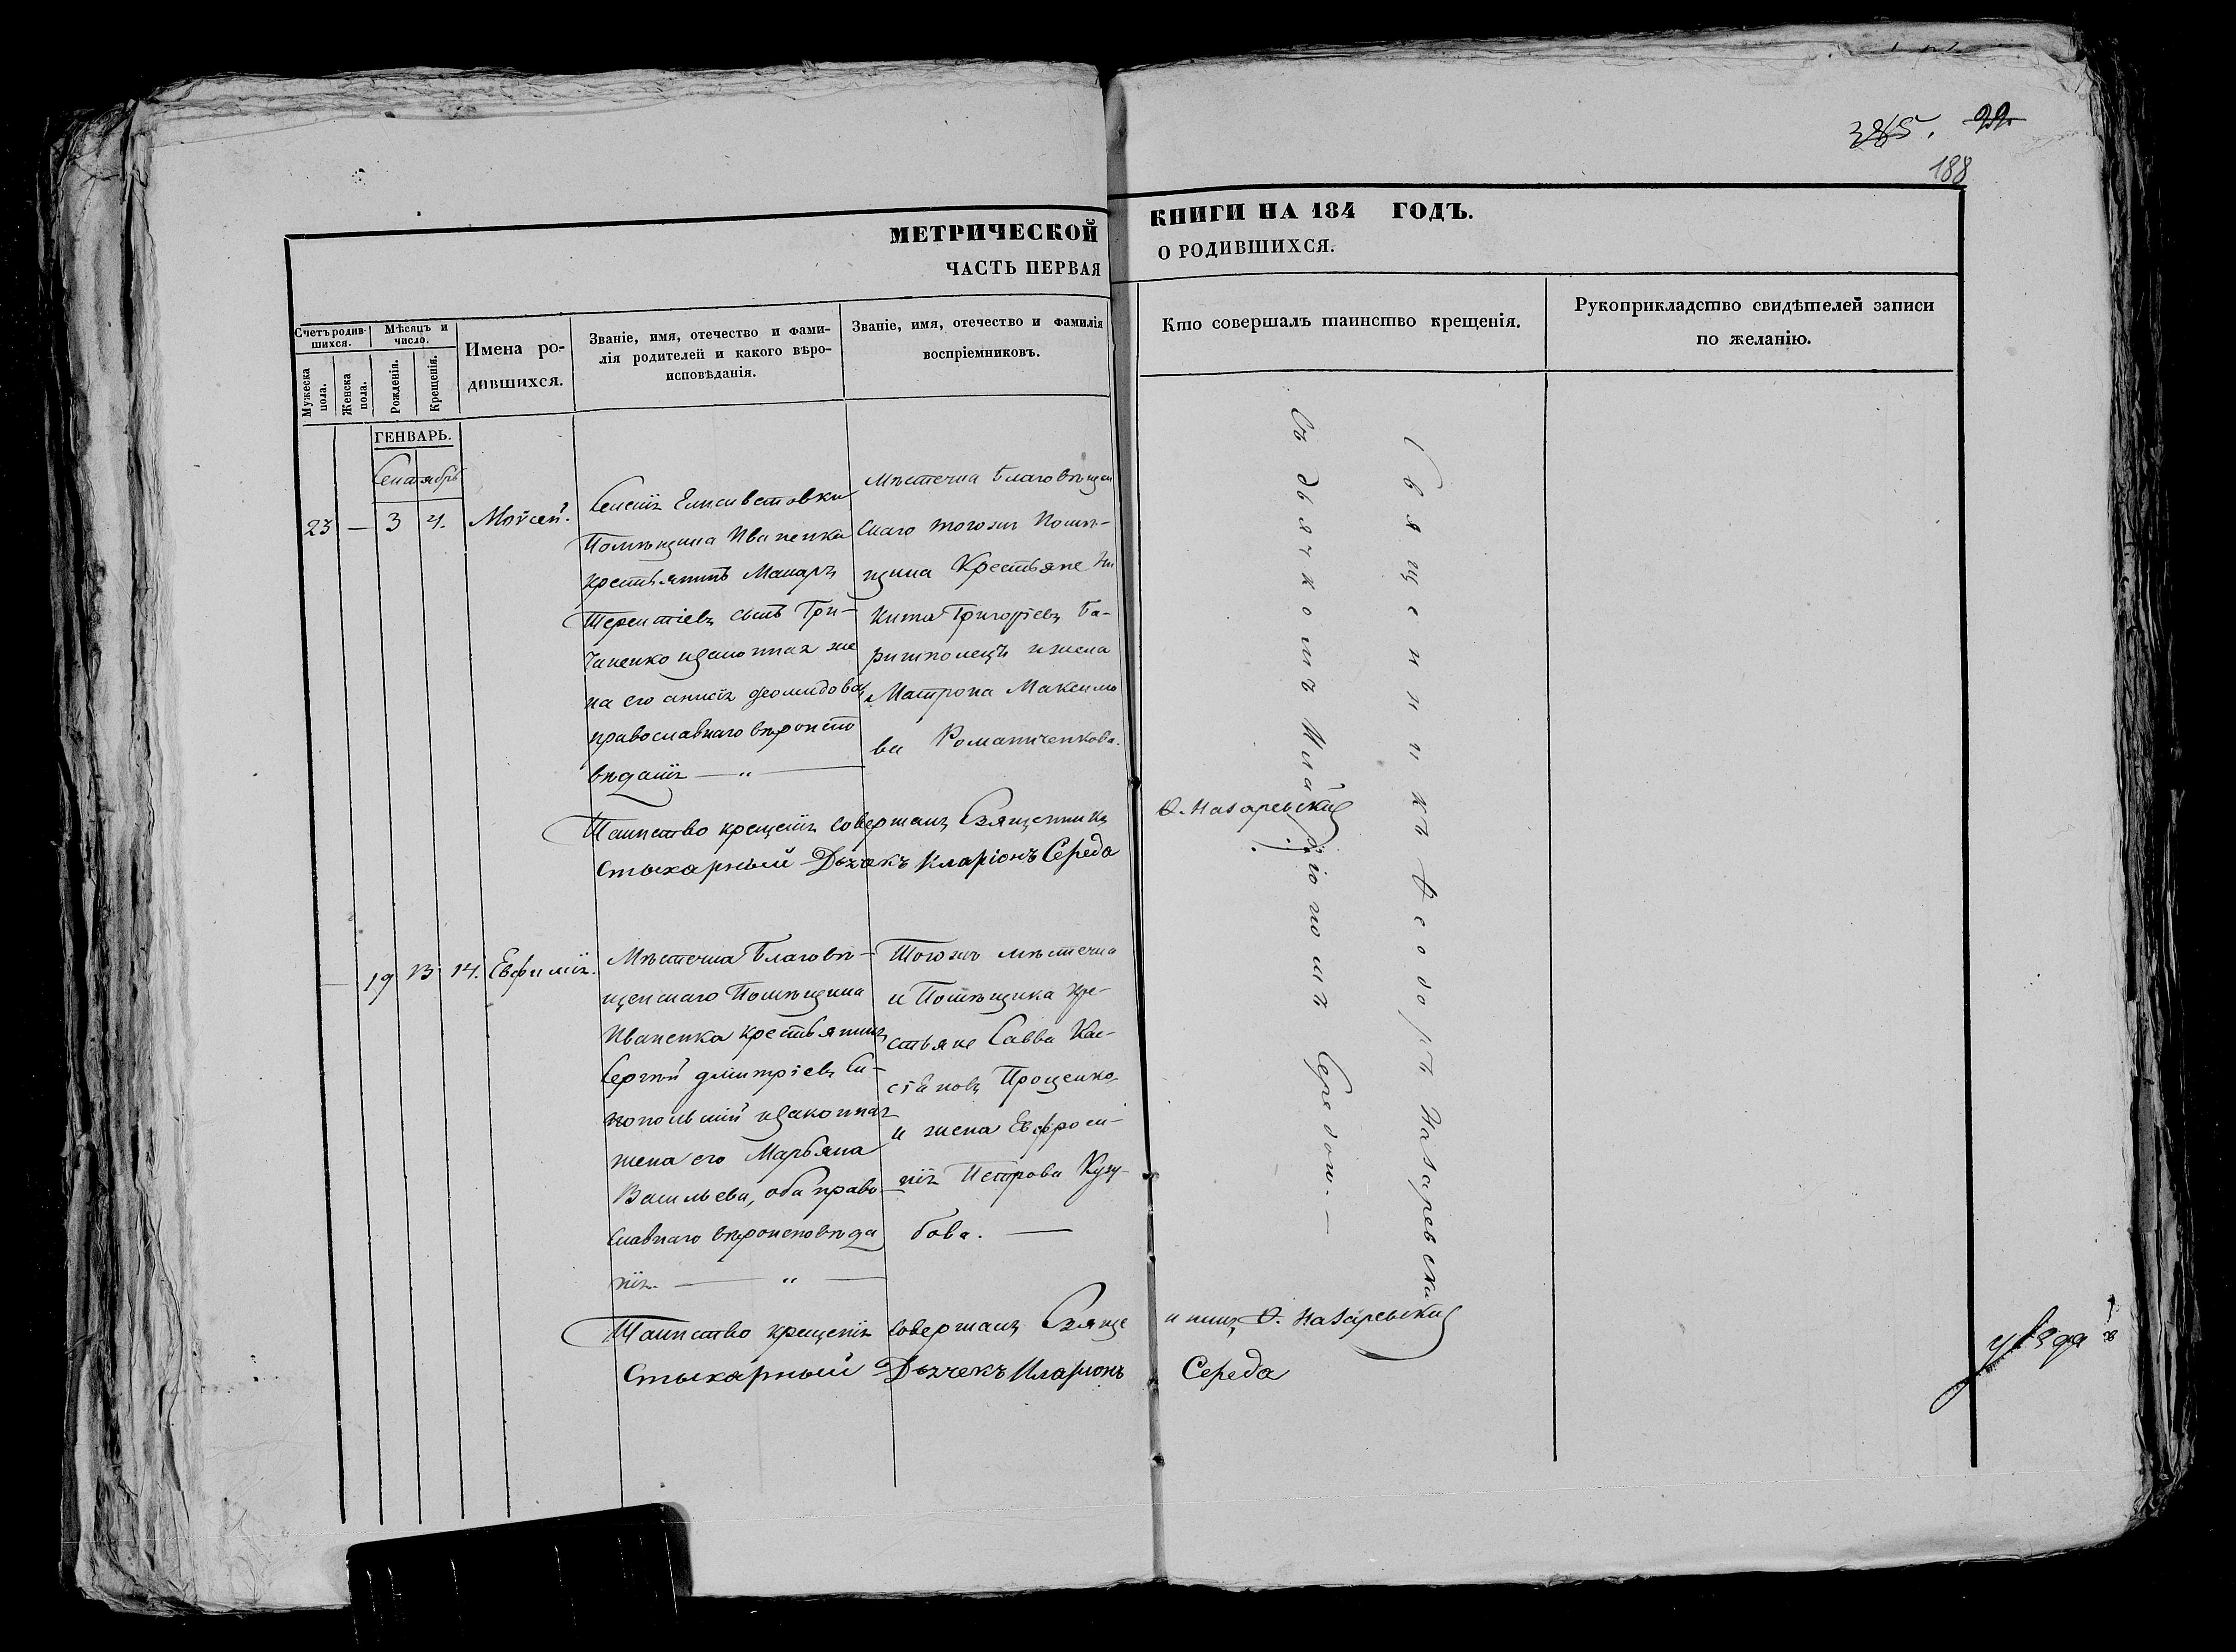 385. 22
188
МЕТРИЧЕСКОЙ КНИГИ НА 184 ГОДЪ.
ЧАСТЬ ПЕРВАЯ О РОДИВШИХСЯ.
Счетъ родив-
шихся.
Мужеска
пола.
Женска
пола.
Мѣсяцъ и
число.
Рожденія.
Крещенія.
Имена ро-
дившихся.
Званіе, имя, отечество и фами-
лія родителей и какого вѣро-
исповѣданія.
Званіе, имя, отечество и фамилія
воспріемниковъ.
Кто совершалъ таинство крещенія.
Рукоприкладство свидѣтелей записи
по желанію.
ГЕНВАРЬ.
Сентябрь
23 — 3 4. Моѵсей.
Елисаветовки
Помѣщика Иваненка
крестьянинъ Макаръ
Терентіевъ сынъ Гри-
ценко изаконная же
на его Діомидова
православнаго вѣроиспо
вѣданія — „ —
мѣстечка Благовѣщен
скаго тогожъ помѣ-
щика Крестьяне Ни
кита Григоріевъ Ба-
ижена
Матрона Максимо
ва Романченкова.
Таинство крещенія совершалъ Священникъ Ѳ. Назаревскій
Стихарный Дьячекъ Иларіонъ Середа
— 19 13 14. Евфимія.
Мѣстечка Благовѣ-
щенскаго Помѣщика
Иваненка крестьянинъ
Сергѣй Дмитріевъ Си-
нопольскій изаконная
жена его Марьяна
Васильева, оба право
славнаго вѣроисповѣда
нія. — „ —
Тогожъ мѣстечка
и Помѣщика кре-
стьяне Савва Кас-
сіановъ Проценко,
и жена Евфроси-
нія Петрова Кузу-
бова. —
Таинство крещенія совершалъ Свяще нникъ Ѳ. Назаревскій
Стихарный Дьячекъ Иларіонъ Середа
Священникъ Ѳеодоръ Назаревскій
Съ дьячкомъ Иларіономъ Середою. —